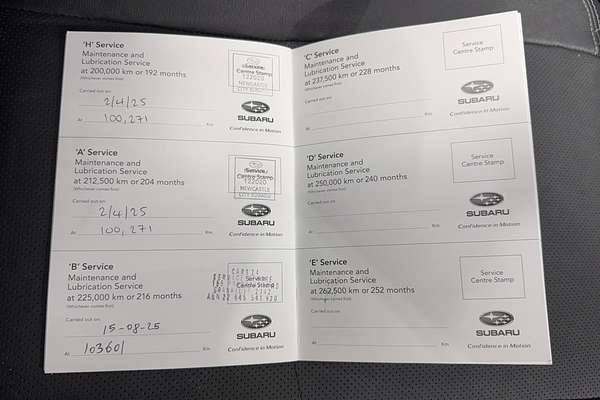 'H' Service
Maintenance and
Lubrication Service
at 200,000 km or 192 months
(Whichever comes first)
Service
Centre Stamp
122020
NEWCASTLE
CITY SUBARU
Carried out on:
2/4/25
At 100,271 Km
SUBARU
Confidence in Motion
'A' Service
Maintenance and
Lubrication Service
at 212,500 km or 204 months
(Whichever comes first)
Service
Centre Stamp
122020
NEWCASTLE
CITY SUBARU
Carried out on:
2/4/25
At 100,271 Km
SUBARU
Confidence in Motion
'B' Service
Maintenance and
Lubrication Service
at 225,000 km or 216 months
(Whichever comes first)
Service
Centre Stamp
Carried out on:
15-08-25
At 103601 Km
SUBARU
Confidence in Motion
'C' Service
Maintenance and
Lubrication Service
at 237,500 km or 228 months
(Whichever comes first)
Service
Centre Stamp
Carried out on:
At Km
SUBARU
Confidence in Motion
'D' Service
Maintenance and
Lubrication Service
at 250,000 km or 240 months
(Whichever comes first)
Service
Centre Stamp
Carried out on:
At Km
SUBARU
Confidence in Motion
'E' Service
Maintenance and
Lubrication Service
at 262,500 km or 252 months
(Whichever comes first)
Service
Centre Stamp
Carried out on:
At Km
SUBARU
Confidence in Motion